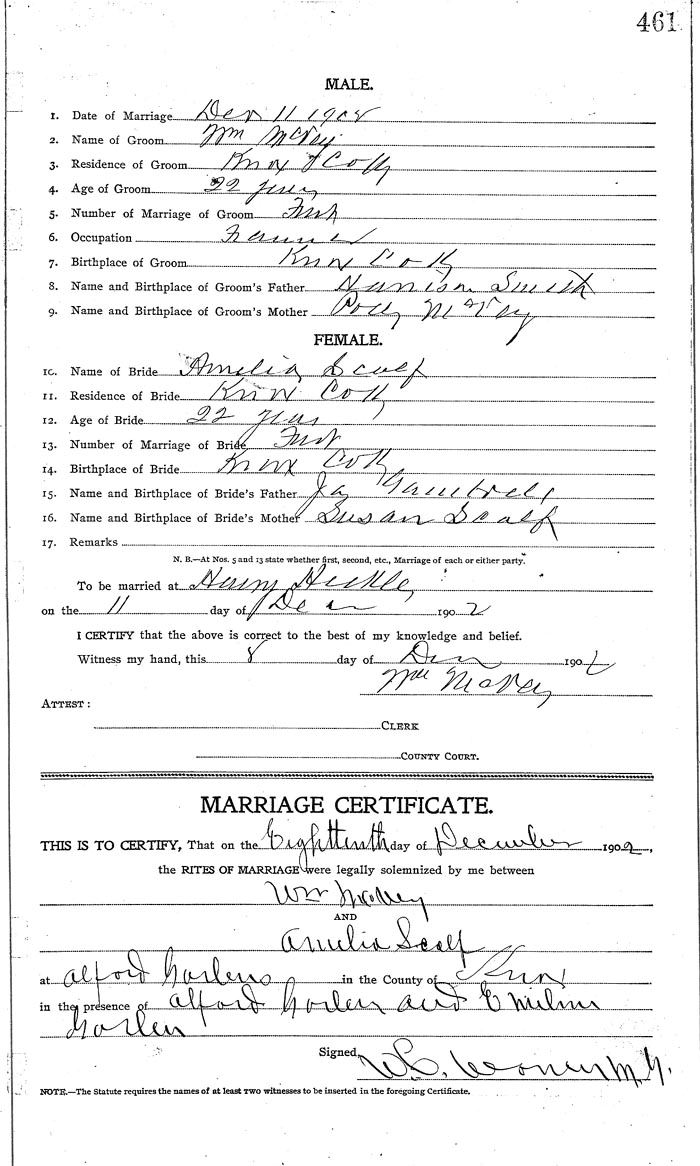 461
MALE.
1. Date of Marriage Dec 11 1902
2. Name of Groom Wm McVey
3. Residence of Groom Knox Co Ky
4. Age of Groom 22 years
5. Number of Marriage of Groom First
6. Occupation Farmer
7. Birthplace of Groom Knox Co Ky
8. Name and Birthplace of Groom's Father Harrison Smith
9. Name and Birthplace of Groom's Mother Polly McVey
FEMALE.
10. Name of Bride Amelia Scalf
11. Residence of Bride Knox Co Ky
12. Age of Bride 22 years
13. Number of Marriage of Bride First
14. Birthplace of Bride Knox Co Ky
15. Name and Birthplace of Bride's Father Gambrell
16. Name and Birthplace of Bride's Mother Susan Scalf
17. Remarks
N. B.—At Nos. 5 and 13 state whether first, second, etc., Marriage of each or either party.
To be married at Henry
on the 11 day of Dec 1902
I CERTIFY that the above is correct to the best of my knowledge and belief.
Witness my hand, this 8 day of Dec 1902
Wm McVey
ATTEST:
CLERK
COUNTY COURT.
MARRIAGE CERTIFICATE.
THIS IS TO CERTIFY, That on the Eightteenth day of December 1902,
the RITES OF MARRIAGE were legally solemnized by me between
Wm McVey
AND
Amelia Scalf
at Alford in the County of Knox
in the presence of Alford and
Signed, W.
NOTE.—The Statute requires the names of at least two witnesses to be inserted in the foregoing Certificate.